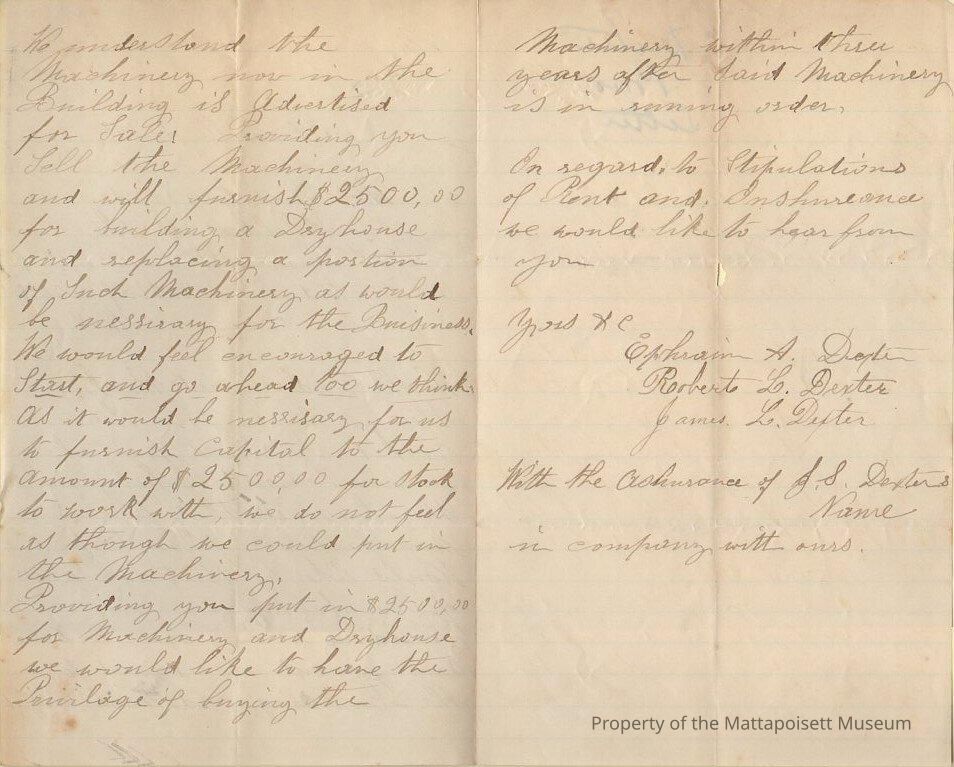 We understand the
Machinery now in the
Building is Advertised
for Sale! Providing you
Sell the Machinery
and will furnish $2500,00
for building a Dryhouse
and replacing a portion
of Such Machinery as would
be nessirary for the Buisiness.
We would feel encouraged to
Start, and go ahead too we think
As it would be nessisary for us
to furnish Capital to the
Amount of $250000 for stock
to work with, we do not feel
as though we could put in
the Machinery,
Providing you put in $2500,00
for Machinery and Dryhouse
we would like to have the
Privilage of buying the
Machinery within three
years after Said Machinery
is in runing order.
In regard, to Stipulations
of Rent and, Inshureance
we would like to hear from
you
Yous &c
Ephraim A. Dexter
Roberto L. Dexter
James. L. Dexter
With the Ashurance of J. S. Dexters
Name
in company with ours.
Property of the Mattapoisett Museum